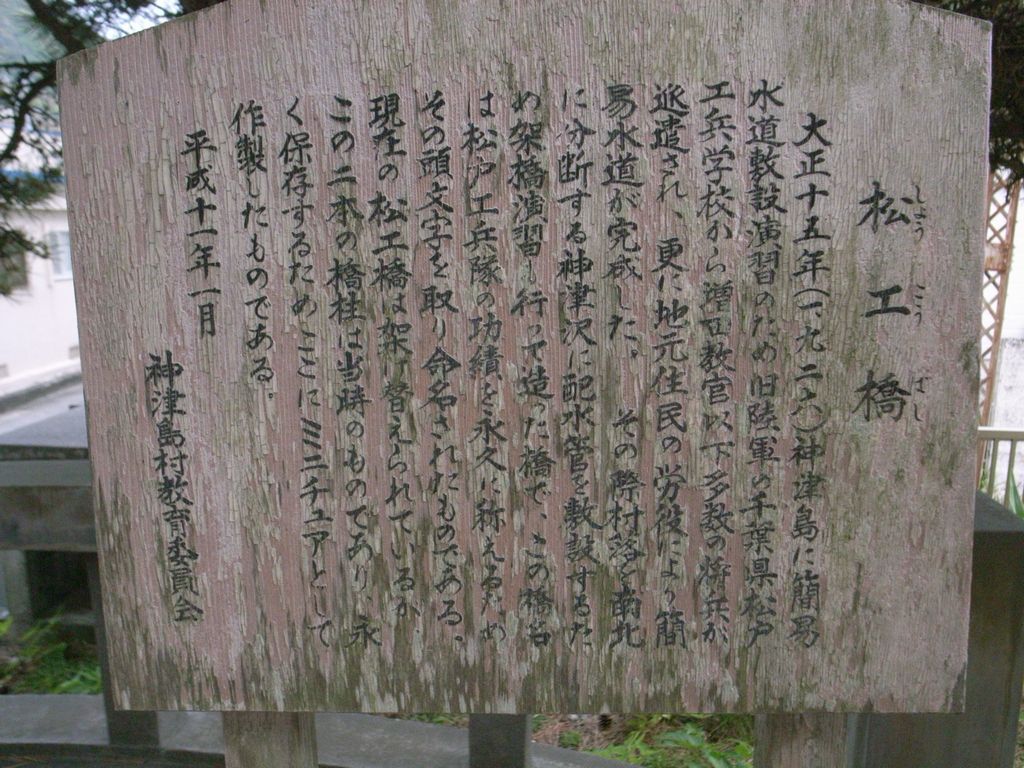 松工橋
しょうこうばし
大正十五年(一九二六)神津島に簡易
水道敷設演習のため旧陸軍の千葉県松戸
工兵学校から増田教官以下多数の将兵が
派遣され、更に地元住民の労役により簡
易水道が完成した。その際村落を南北
に分断する神津沢に配水管を敷設するた
め架橋演習を行って造った橋で、この橋名
は松戸工兵隊の功績を永久に称えるため
その頭文字を取り命名されたものである。
現在の松工橋は架け替えられているが、
この二本の橋柱は当時のものであり、永
く保存するためここにミニチュアとして
作製したものである。
平成十一年一月
神津島村教育委員会